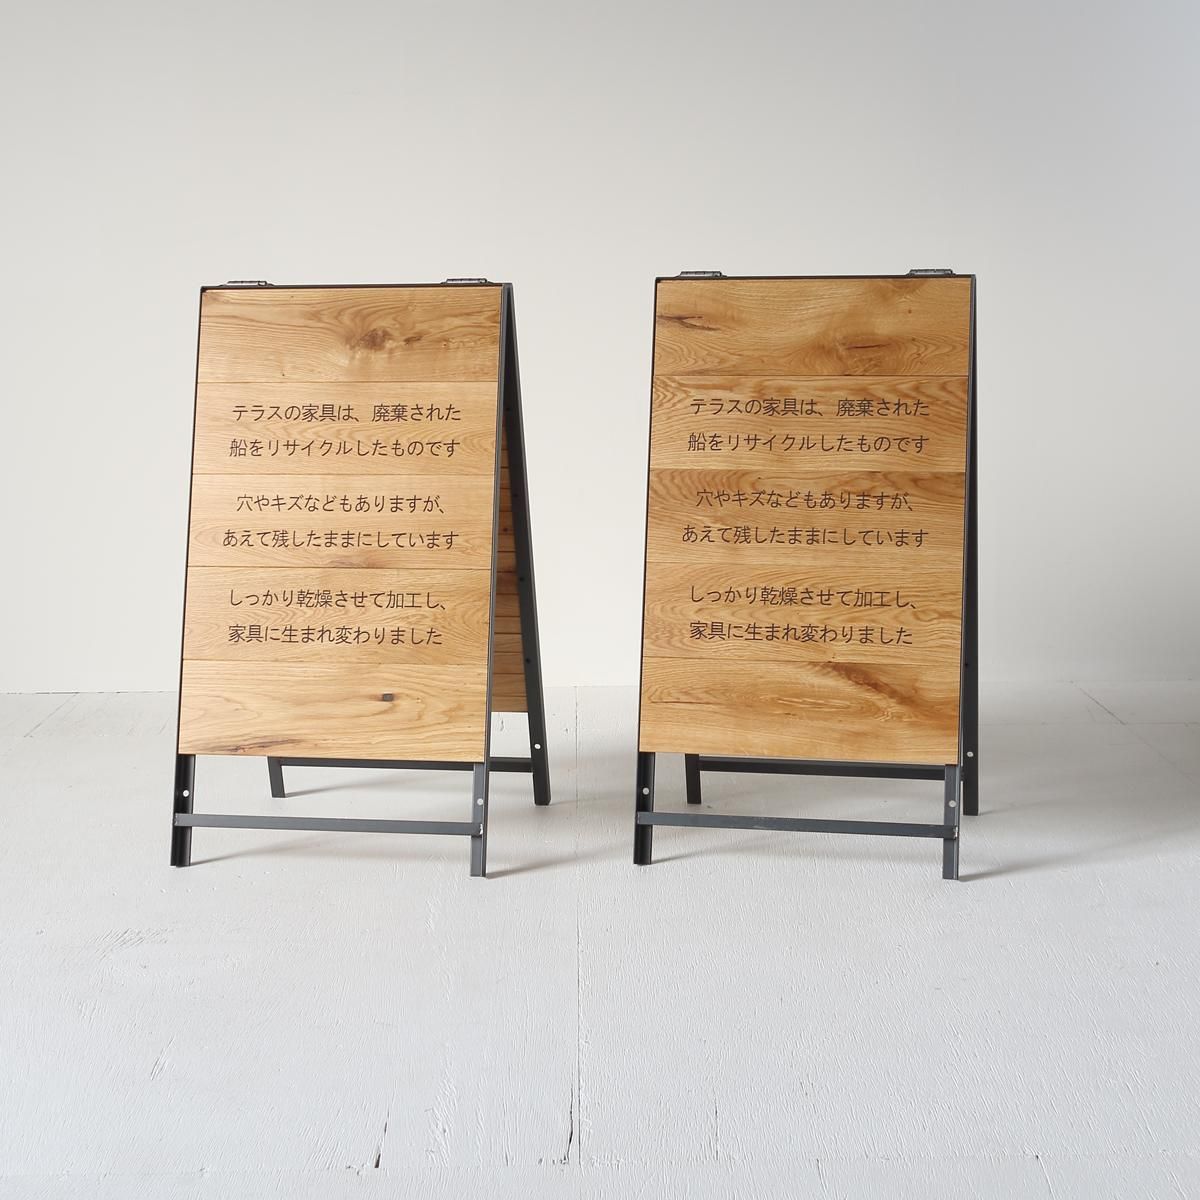 テラスの家具は、廃棄された
船をリサイクルしたものです
穴やキズなどもありますが、
あえて残したままにしています
しっかり乾燥させて加工し、
家具に生まれ変わりました
テラスの家具は、廃棄された
船をリサイクルしたものです
穴やキズなどもありますが、
あえて残したままにしています
しっかり乾燥させて加工し、
家具に生まれ変わりました